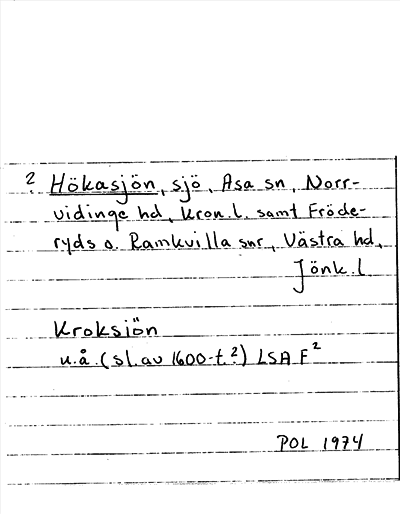 ? Hökasjön, sjö, Asa sn, Norr-
vidinge hd, Kron.l. samt Fröde-
ryds o. Ramkvilla snr, Västra hd,
Jönk.l
Kroksjön
u.å. (sl.av 1600-t.?) LSA F²
POL 1974